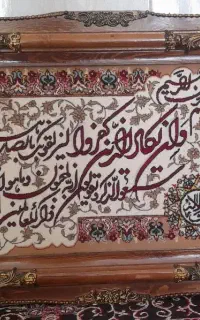 الرحيم
وان یکاد الذین کفروا لیزلقونک بابصار
سمعوا الذکر ویقولون انه لمجنون وما هو الا
ذکر للعالمین